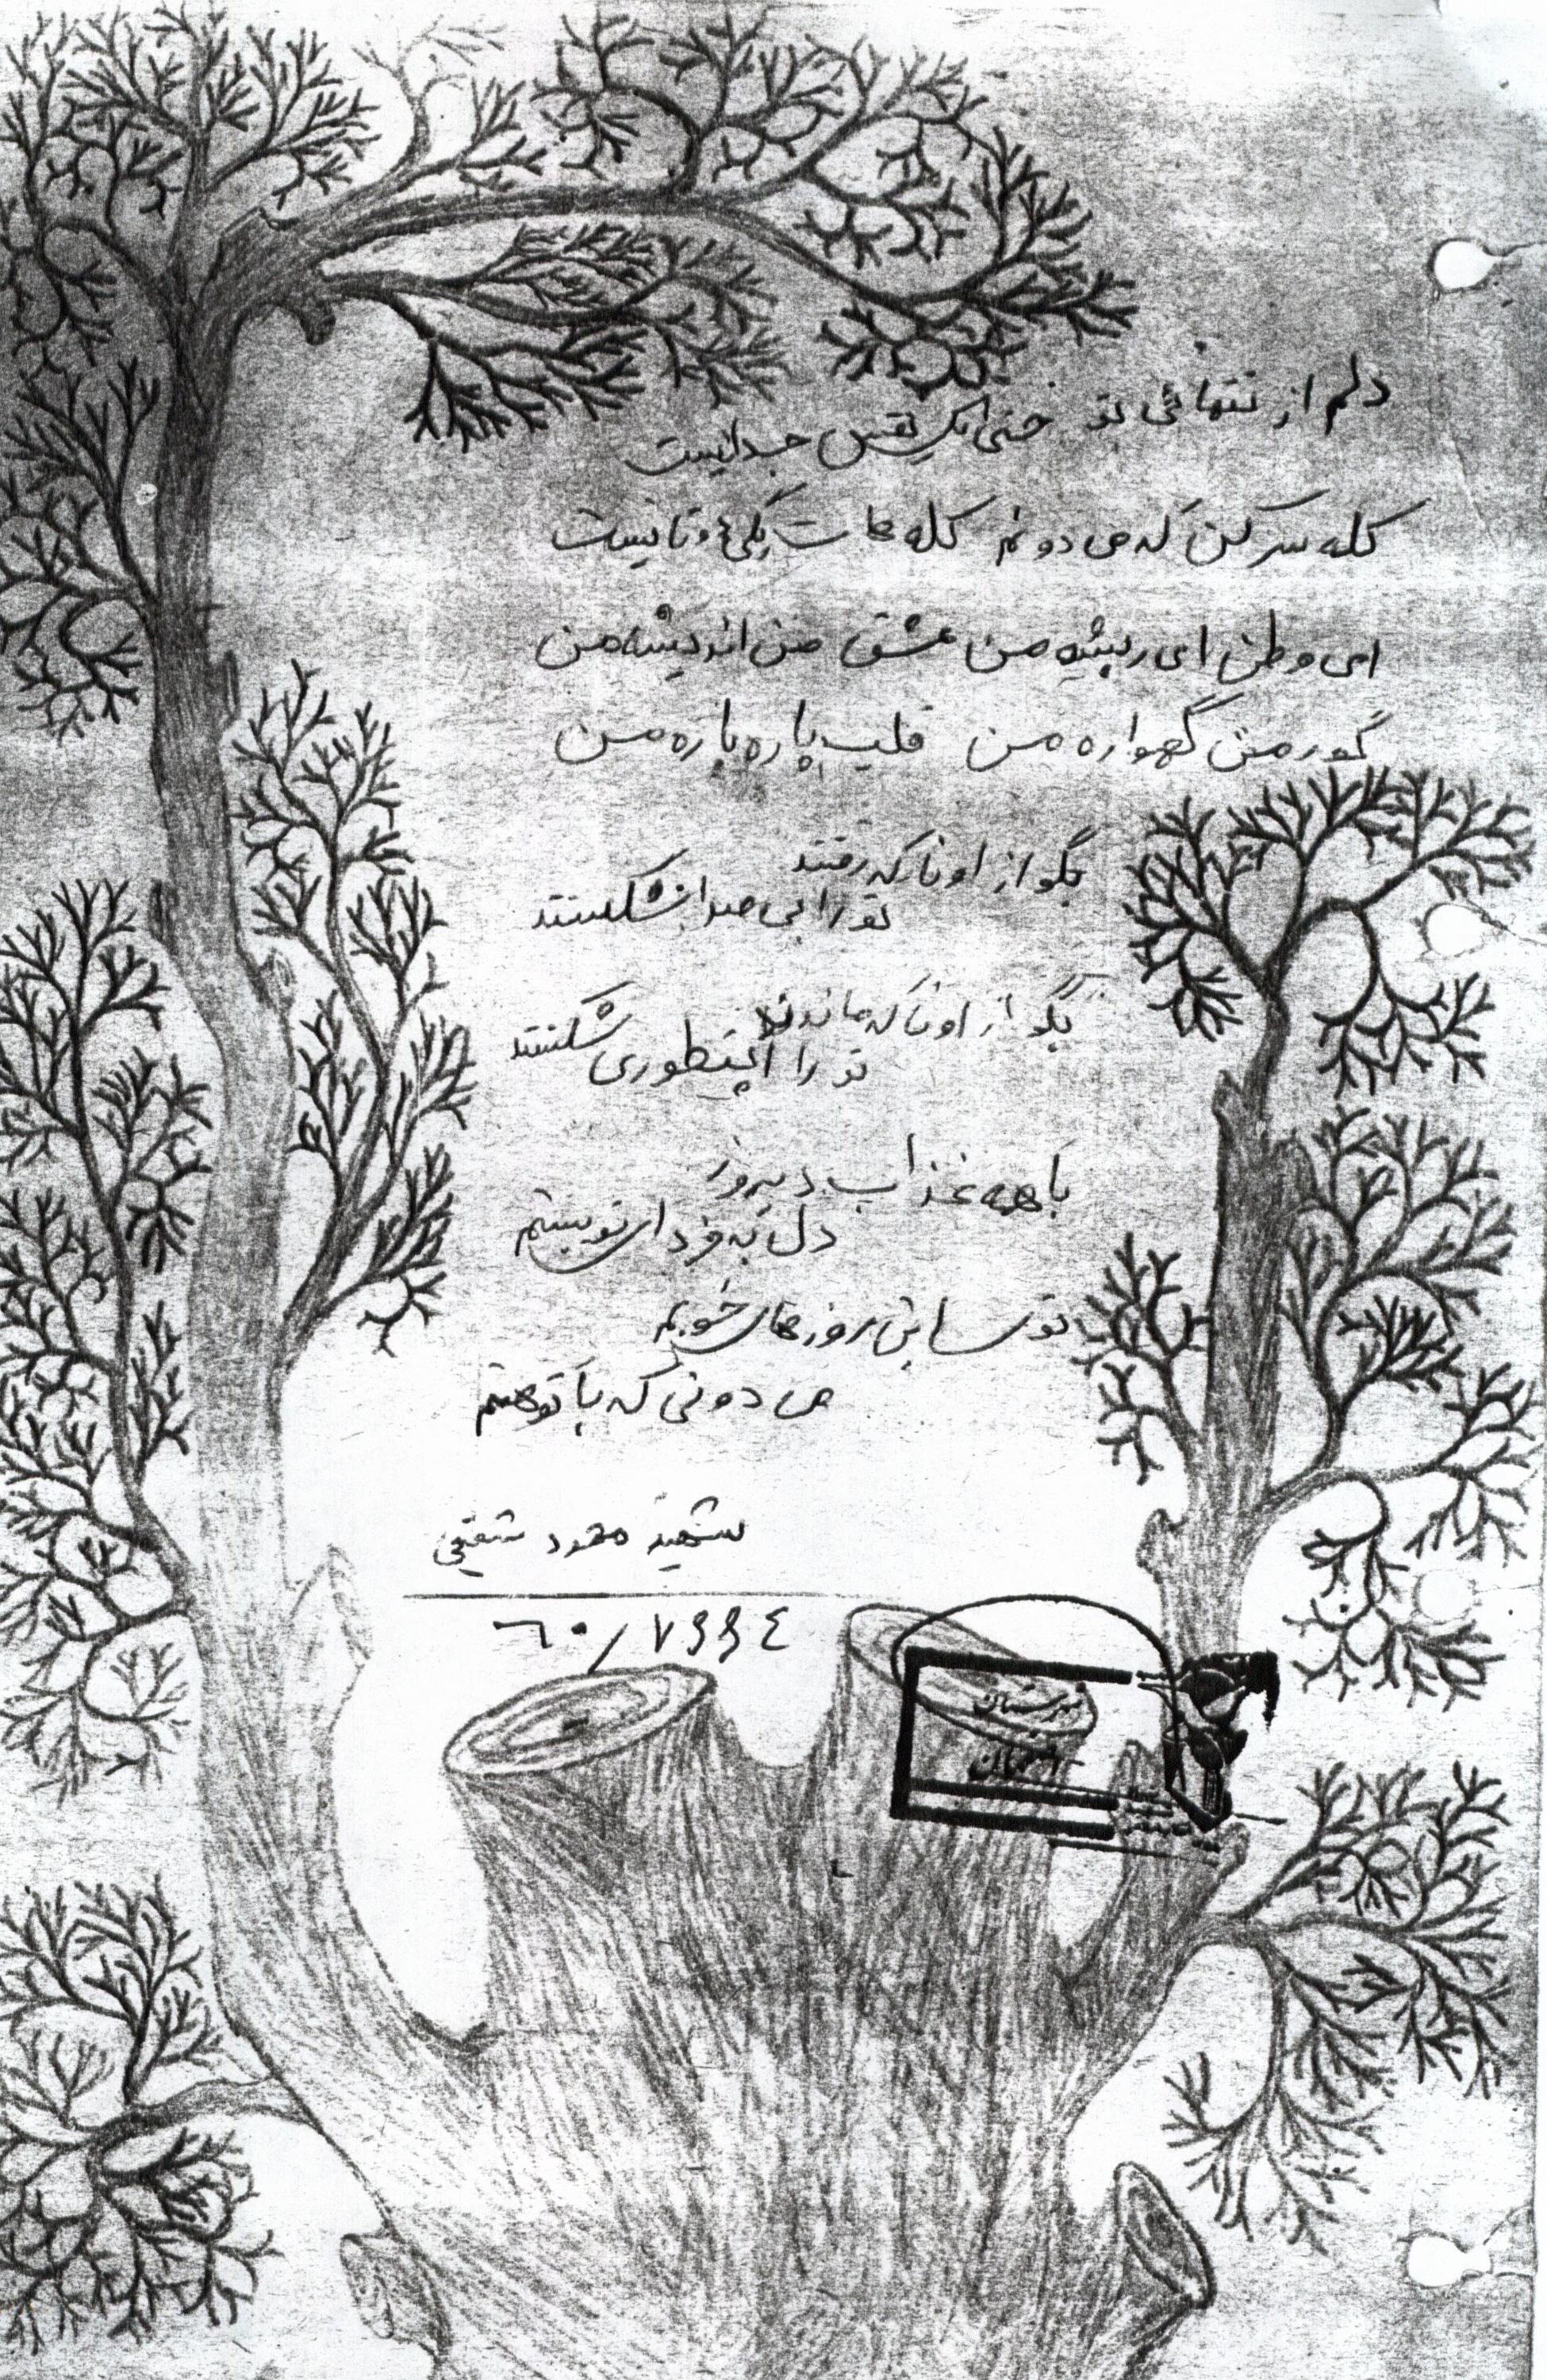 دلم از تنهائی تو حتی یک نفس جدانیست
گله سر کن که می دونم گله هات یکی دوتا نیست
ای وطن ای ریشه من عشق من اندیشه من
گور من گهواره من قلب پاره پاره من
بگو از اونا که رفتند
تو را بی صدا شکستند
بگو از اونا که ماندند
تو را اینطوری شکستند
با همه عذاب دیروز
دل به فردای تو بستم
تو سیاهی روزهای خوبم
می دونی که با تو هستم
شهید محمود شفیعی
٦٠/٧٩٩٤